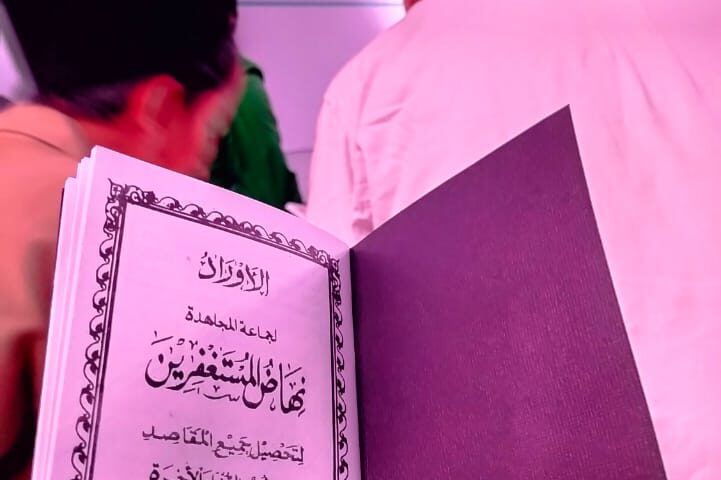 الأَوْرَادُ
لجماعة المجاهدة
نِهَاضُ المُسْتَغْفِرِينَ
لِتَحْصِيْلِ جَمِيْعِ المَقَاصِدِ